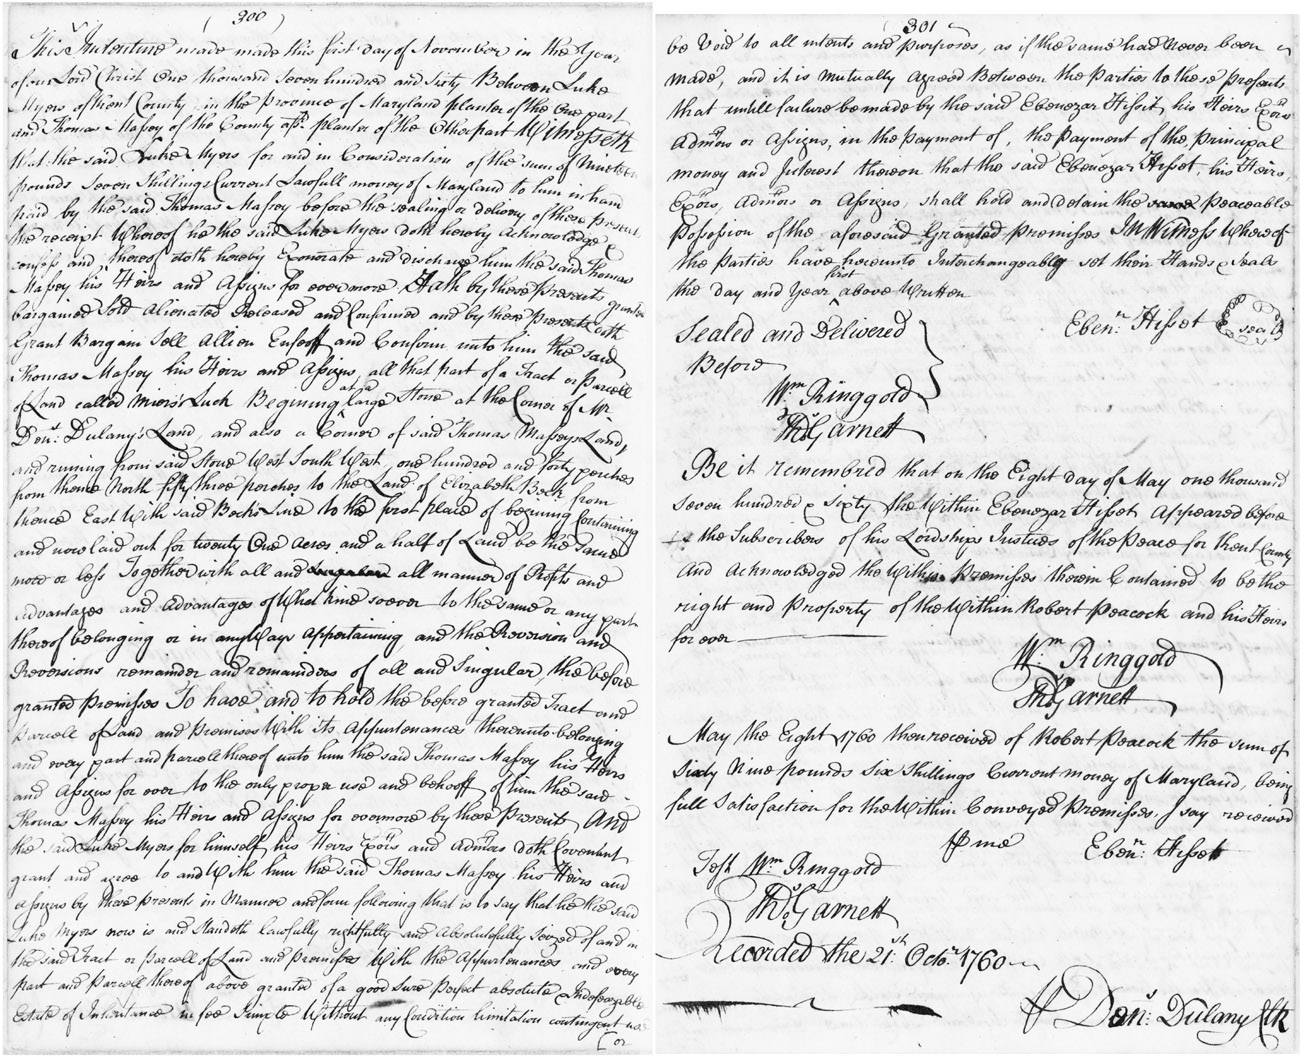 ( 300 )
This Indenture made made this first day of November in the Year
of our Lord Christ One thousand Seven hundred and Sixty Between Luke
Myers of Kent County in the Province of Maryland planter of the One part
and Thomas Massey of the County afsd. planter of the Other part Witnesseth
that the said Luke Myers for and in Consideration of the sum of Nineteen
pounds Seven Shillings Current Lawfull money of Maryland to him in hand
paid by the said Thomas Massey before the sealing or delivery of these present
the receipt Whereof he the said Luke Myers doth hereby Acknowledge &
confess and thereof doth hereby Exonerate and discharge him the said Thomas
Massey his Heirs and Assigns for evermore Hath by these Presents granted
bargained Sold Alienated Released and Confirmed and by these Presents doth
Grant Bargain Sell Allien Enfeoff and Confirm unto him the said
Thomas Massey his Heirs and Assigns, all that part of a Tract or Parcell
of Land called Miers's Luck Begining at a large Stone at the Corner of Mr.
Dens. Dulany's Land, and also a Corner of said Thomas Massey's Land,
and runing from said Stone West South West, one hundred and forty perches
from thence North fifty three perches to the Land of Elizabeth Beck from
thence East With said Beck's Line to the first place of begining Containing
and now laid out for twenty One Acres and a half of Land be the Same
more or less Together with all and all manner of Profits and
advantages and advantages of What kine soever to the same or any part
thereof belonging or in any Ways Appertaining, and the Reversion and
Reversions remainder and remainders of all and Singular, the before
granted Premisses To have and to hold the before granted Tract and
Parcell of Land and Premises With its Appurtenances thereunto belonging
and every part and parcell thereof unto him the said Thomas Massey his Heirs
and Assigns for ever to the only proper use and behooff of him the said
Thomas Massey his Heirs and Assigns for evermore by these Presents And
the said Luke Myers for himself, his Heirs Exors and Admors doth Covenant
grant and agree to and With him the said Thomas Massey his Heirs and
assigns by these presents in Manner and form following that is to say that he the said
Luke Myers now is and Standeth lawfully rightfully and Absolutefully Seized of and in
the said Tract or Parcell of Land and Premisses With the Appurtenances and every
part and Parcell thereof above granted of a good Sure Perfect absolute & Indefeazeable
Estate of Inheritance in fee Simple Without any Condition limitation contingent use
or
301
be Void to all intents and purposes, as if the same had Never been
made, and it is mutually Agreed Between the Parties to these presents
that untill failure be made by the said Ebenezar Hisset, his Heirs Exors
Admors or Assigns, in the Payment of, the Payment of the Principal
money and Interest thereon that the said Ebenezar Hisset, his Heirs,
Exors, Admors or Assigns, shall hold and detain the Peaceable
Possession of the aforesaid Granted premisses In Witness Whereof
the Parties have hereunto Interchangeably set their Hands & Seals
the day and Year first above Written
Ebenr. Hisset seal
Sealed and Delivered
Before
Wm Ringgold
Thos Garnett
Be it remembred that on the Eight day of May one thousand
seven hundred & sixty the Within Ebenezar Hisset Appeared before
the Subscribers of his Lordships Justices of the Peace for Kent County
And Acknowledged the Within Premisses therein Contained to be the
right and Property of the Within Robert Peacock and his Heirs
for ever
Wm. Ringgold
Thos Garnett
May the Eight 1760 then received of Robert Peacock the sum of
Sixty Nine pounds six Shillings Current money of Maryland, being
full Satisfaction for the Within Conveyed Premisses, I say received
P me Ebenr: Hissett
Test Wm Ringgold
Thos Garnett
Recorded the 21st. Octor. 1760
P Dens: Dulany Clk